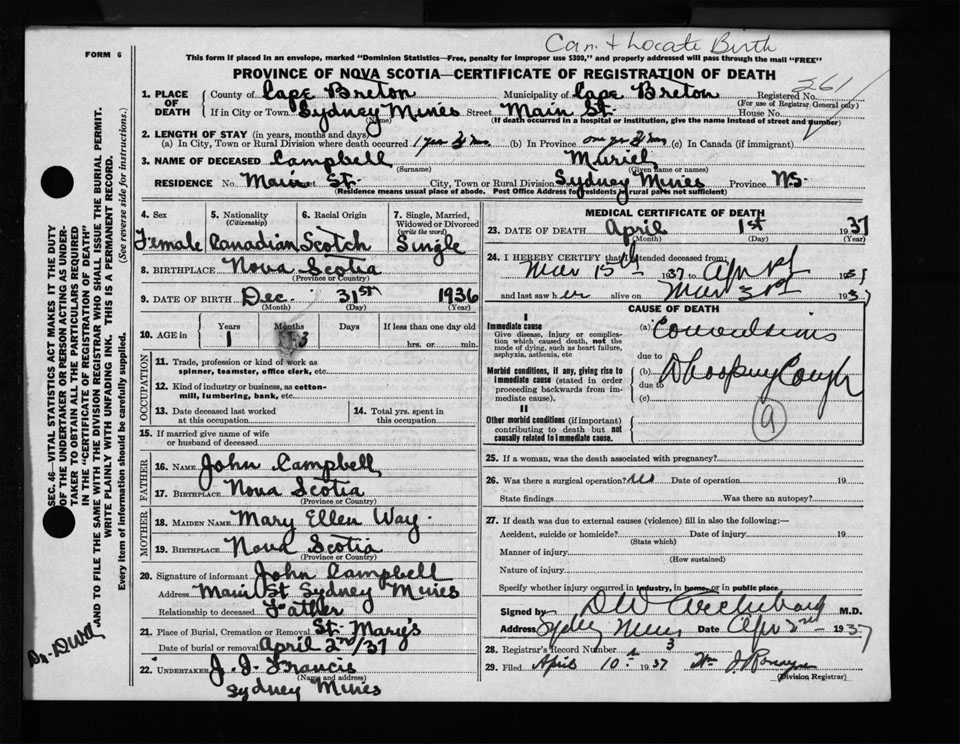 Can + Locate Birth
FORM 6
This form if placed in an envelope, marked "Dominion Statistics—Free, penalty for improper use $300," and properly addressed will pass through the mail "FREE"
PROVINCE OF NOVA SCOTIA—CERTIFICATE OF REGISTRATION OF DEATH
261
1. PLACE OF DEATH
County of Cape Breton Municipality of Cape Breton Registered No.
(For use of Registrar General only)
If in City or Town Sydney Mines Street Main St. House No.
(Name) (If death occurred in a hospital or institution, give the name instead of street and number)
2. LENGTH OF STAY (in years, months and days)
(a) In City, Town or Rural Division where death occurred 1 year (b) In Province one yr (c) In Canada (if immigrant)
3. NAME OF DECEASED Campbell Muriel
(Surname) (Given name or names)
RESIDENCE No. Main St. City, Town or Rural Division Sydney Mines Province N.S.
(Residence means usual place of abode. Post Office Address for residents of rural parts not sufficient)
4. Sex Female
5. Nationality (Citizenship) Canadian
6. Racial Origin Scotch
7. Single, Married, Widowed or Divorced (write the word) Single
8. BIRTHPLACE Nova Scotia
(Province or Country)
9. DATE OF BIRTH Dec. 31st 1936
(Month) (Day) (Year)
10. AGE in Years Months Days If less than one day old
1 3 hrs. or min.
OCCUPATION
11. Trade, profession or kind of work as spinner, teamster, office clerk, etc.
12. Kind of industry or business, as cotton-mill, lumbering, bank, etc.
13. Date deceased last worked at this occupation
14. Total yrs. spent in this occupation
15. If married give name of wife or husband of deceased
FATHER
16. NAME John Campbell
17. BIRTHPLACE Nova Scotia
(Province or Country)
MOTHER
18. MAIDEN NAME Mary Ellen Way.
19. BIRTHPLACE Nova Scotia
(Province or Country)
20. Signature of informant John Campbell
Address Main St Sydney Mines
Relationship to deceased Father
21. Place of Burial, Cremation or Removal St. Mary's
Date of burial or removal April 2nd/37
22. UNDERTAKER J. J. Francis
(Name and address)
Sydney Mines
MEDICAL CERTIFICATE OF DEATH
23. DATE OF DEATH April 1st 1937
(Month) (Day) (Year)
24. I HEREBY CERTIFY that I attended deceased from:
Mar 15th 1937 to Apr 1st 193
and last saw her alive on Mar 193
CAUSE OF DEATH
I
Immediate cause
Give disease, injury or complication which caused death, not the mode of dying, such as heart failure, asphyxia, asthenia, etc
(a) Convulsions
due to
Morbid conditions, if any, giving rise to immediate cause (stated in order proceeding backwards from immediate cause).
(b) Whooping Cough
due to
(c)
9
II
Other morbid conditions (if important) contributing to death but not causally related to immediate cause.
25. If a woman, was the death associated with pregnancy?
26. Was there a surgical operation? no Date of operation 19
State findings Was there an autopsy?
27. If death was due to external causes (violence) fill in also the following:—
Accident, suicide or homicide? Date of injury 19
(State which)
Manner of injury
(How sustained)
Nature of injury
Specify whether injury occurred in industry, in home, or in public place
Signed by D W Archibald M.D.
Address Sydney Mines Date Apr 2nd 1937
28. Registrar's Record Number 3
29. Filed April 10th 1937 Wm J.
(Division Registrar)
SEC. 46—VITAL STATISTICS ACT MAKES IT THE DUTY
OF THE UNDERTAKER OR PERSON ACTING AS UNDER-
TAKER TO OBTAIN ALL THE PARTICULARS REQUIRED
IN THE "CERTIFICATE OF REGISTRATION OF DEATH"
AND TO FILE THE SAME WITH THE DIVISION REGISTRAR WHO SHALL ISSUE THE BURIAL PERMIT.
WRITE PLAINLY WITH UNFADING INK. THIS IS A PERMANENT RECORD.
Every item of information should be carefully supplied. (See reverse side for instructions.)